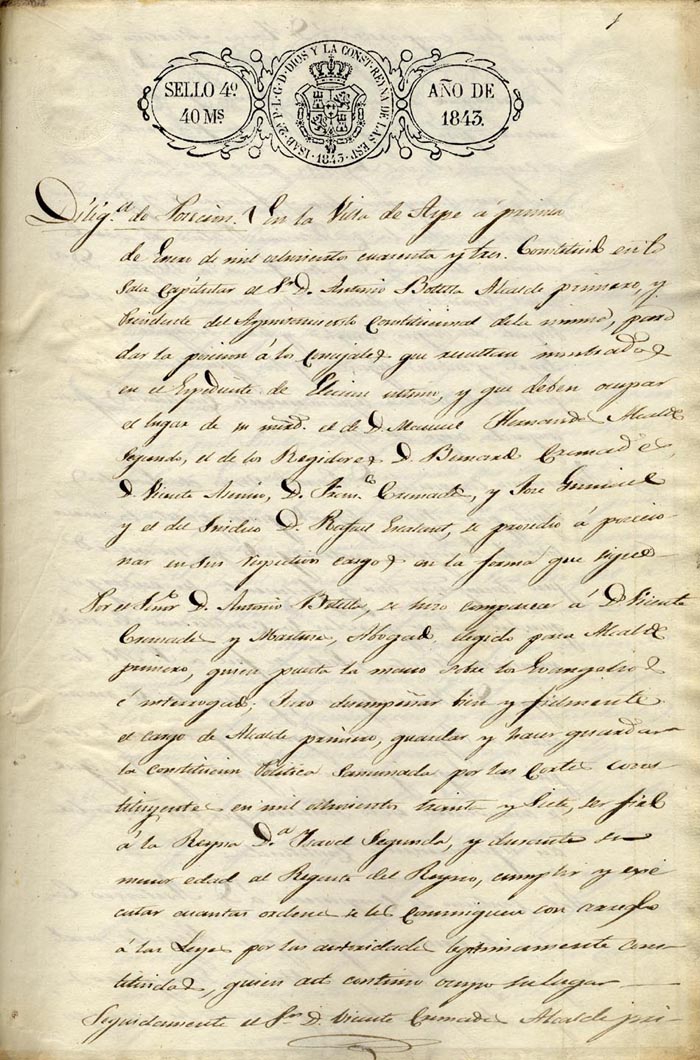 1
SELLO 4º
40 Ms
ISAB. 2ª P. L. G. D. DIOS Y LA CONST. REYNA DE LAS ESP.
·1843·
AÑO DE
1843.
Dilig.ª de Posecion. En la Villa de Aspe á primero
de Enero de mil ochocientos cuarenta y tres. Constituido en la
Sala Capitular el Sr. D. Antonio Botella Alcalde primero, y
Presidente del Ayuntamiento Constitucional de la misma, para
dar la posecion á los Concejales que resultan nombrados
en el Espediente de Eleccion ultimo, y que deben ocupar
el lugar de el de D. Manuel Hernandez Alcalde
segundo, el de los Regidores D. Bernardo Cremades,
D. Vicente D. Fran.co Cremades, y Jose
y el del Sindico D. Rafael se prosedio á posecio
nar en sus respectivos cargos en la forma que sigue
Por el Señor D. Antonio Botella, se hizo comparecer á D. Vicente
Cremades y Martinez, Abogado, elegido para Alcalde
primero, quien puesta la mano sobre los Evangelios
é interrogado. Juro desempeñar bien y fielmente
el cargo de Alcalde primero, guardar y hacer guardar
la constitucion Politica sancionada por las Cortes cons
tituyentes en mil ochocientos treinta y siete, ser fiel
á la Reyna D.ª Isavel Segunda, y durante su
menor edad al Regente del Reyno, cumplir y exe
cutar cuantas ordenes se le comuniquen con arreglo
á las Leyes por las autoridades legitimamente cons
tituidas, quien act continuo ocupo su lugar
Seguidamente el Sor. D. Vicente Cremades Alcalde pri-